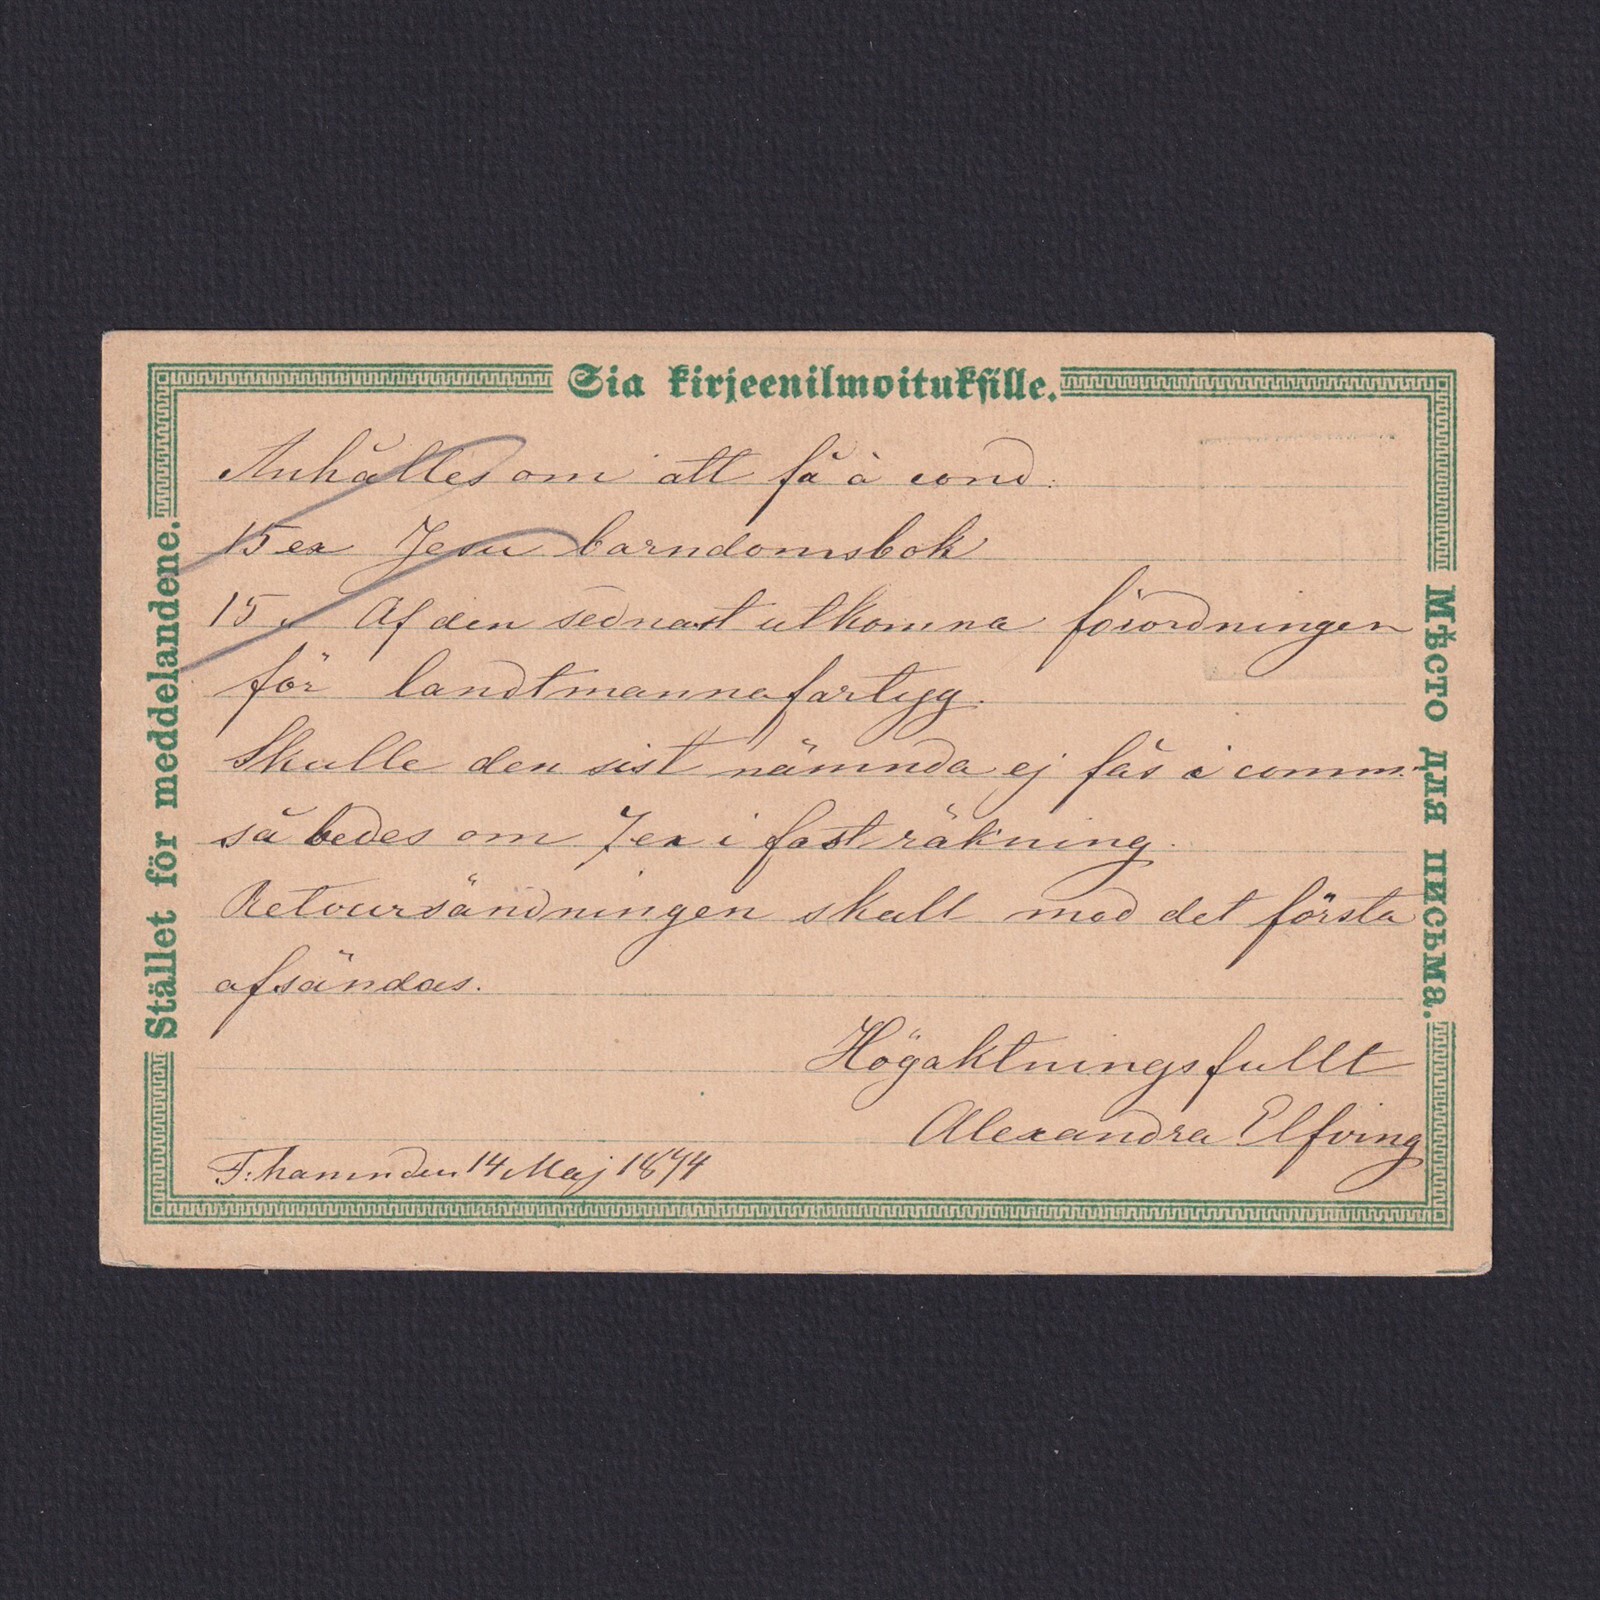 Sia kirjeenilmoituksille.
Stället för meddelandene.
Мѣсто для письма.
Anhålles om att få à cond.
15 ex Jesu barndomsbok
15 " Af den sednast utkomna förordningen
för landtmannafartyg.
Skulle den sist nämnda ej fås i comm.
så bedes om 7 ex i fast räkning.
Retoursändningen skall med det första
afsändas.
Högaktningsfullt
Alexandra Elfving
F:hamn den 14 Maj 1874